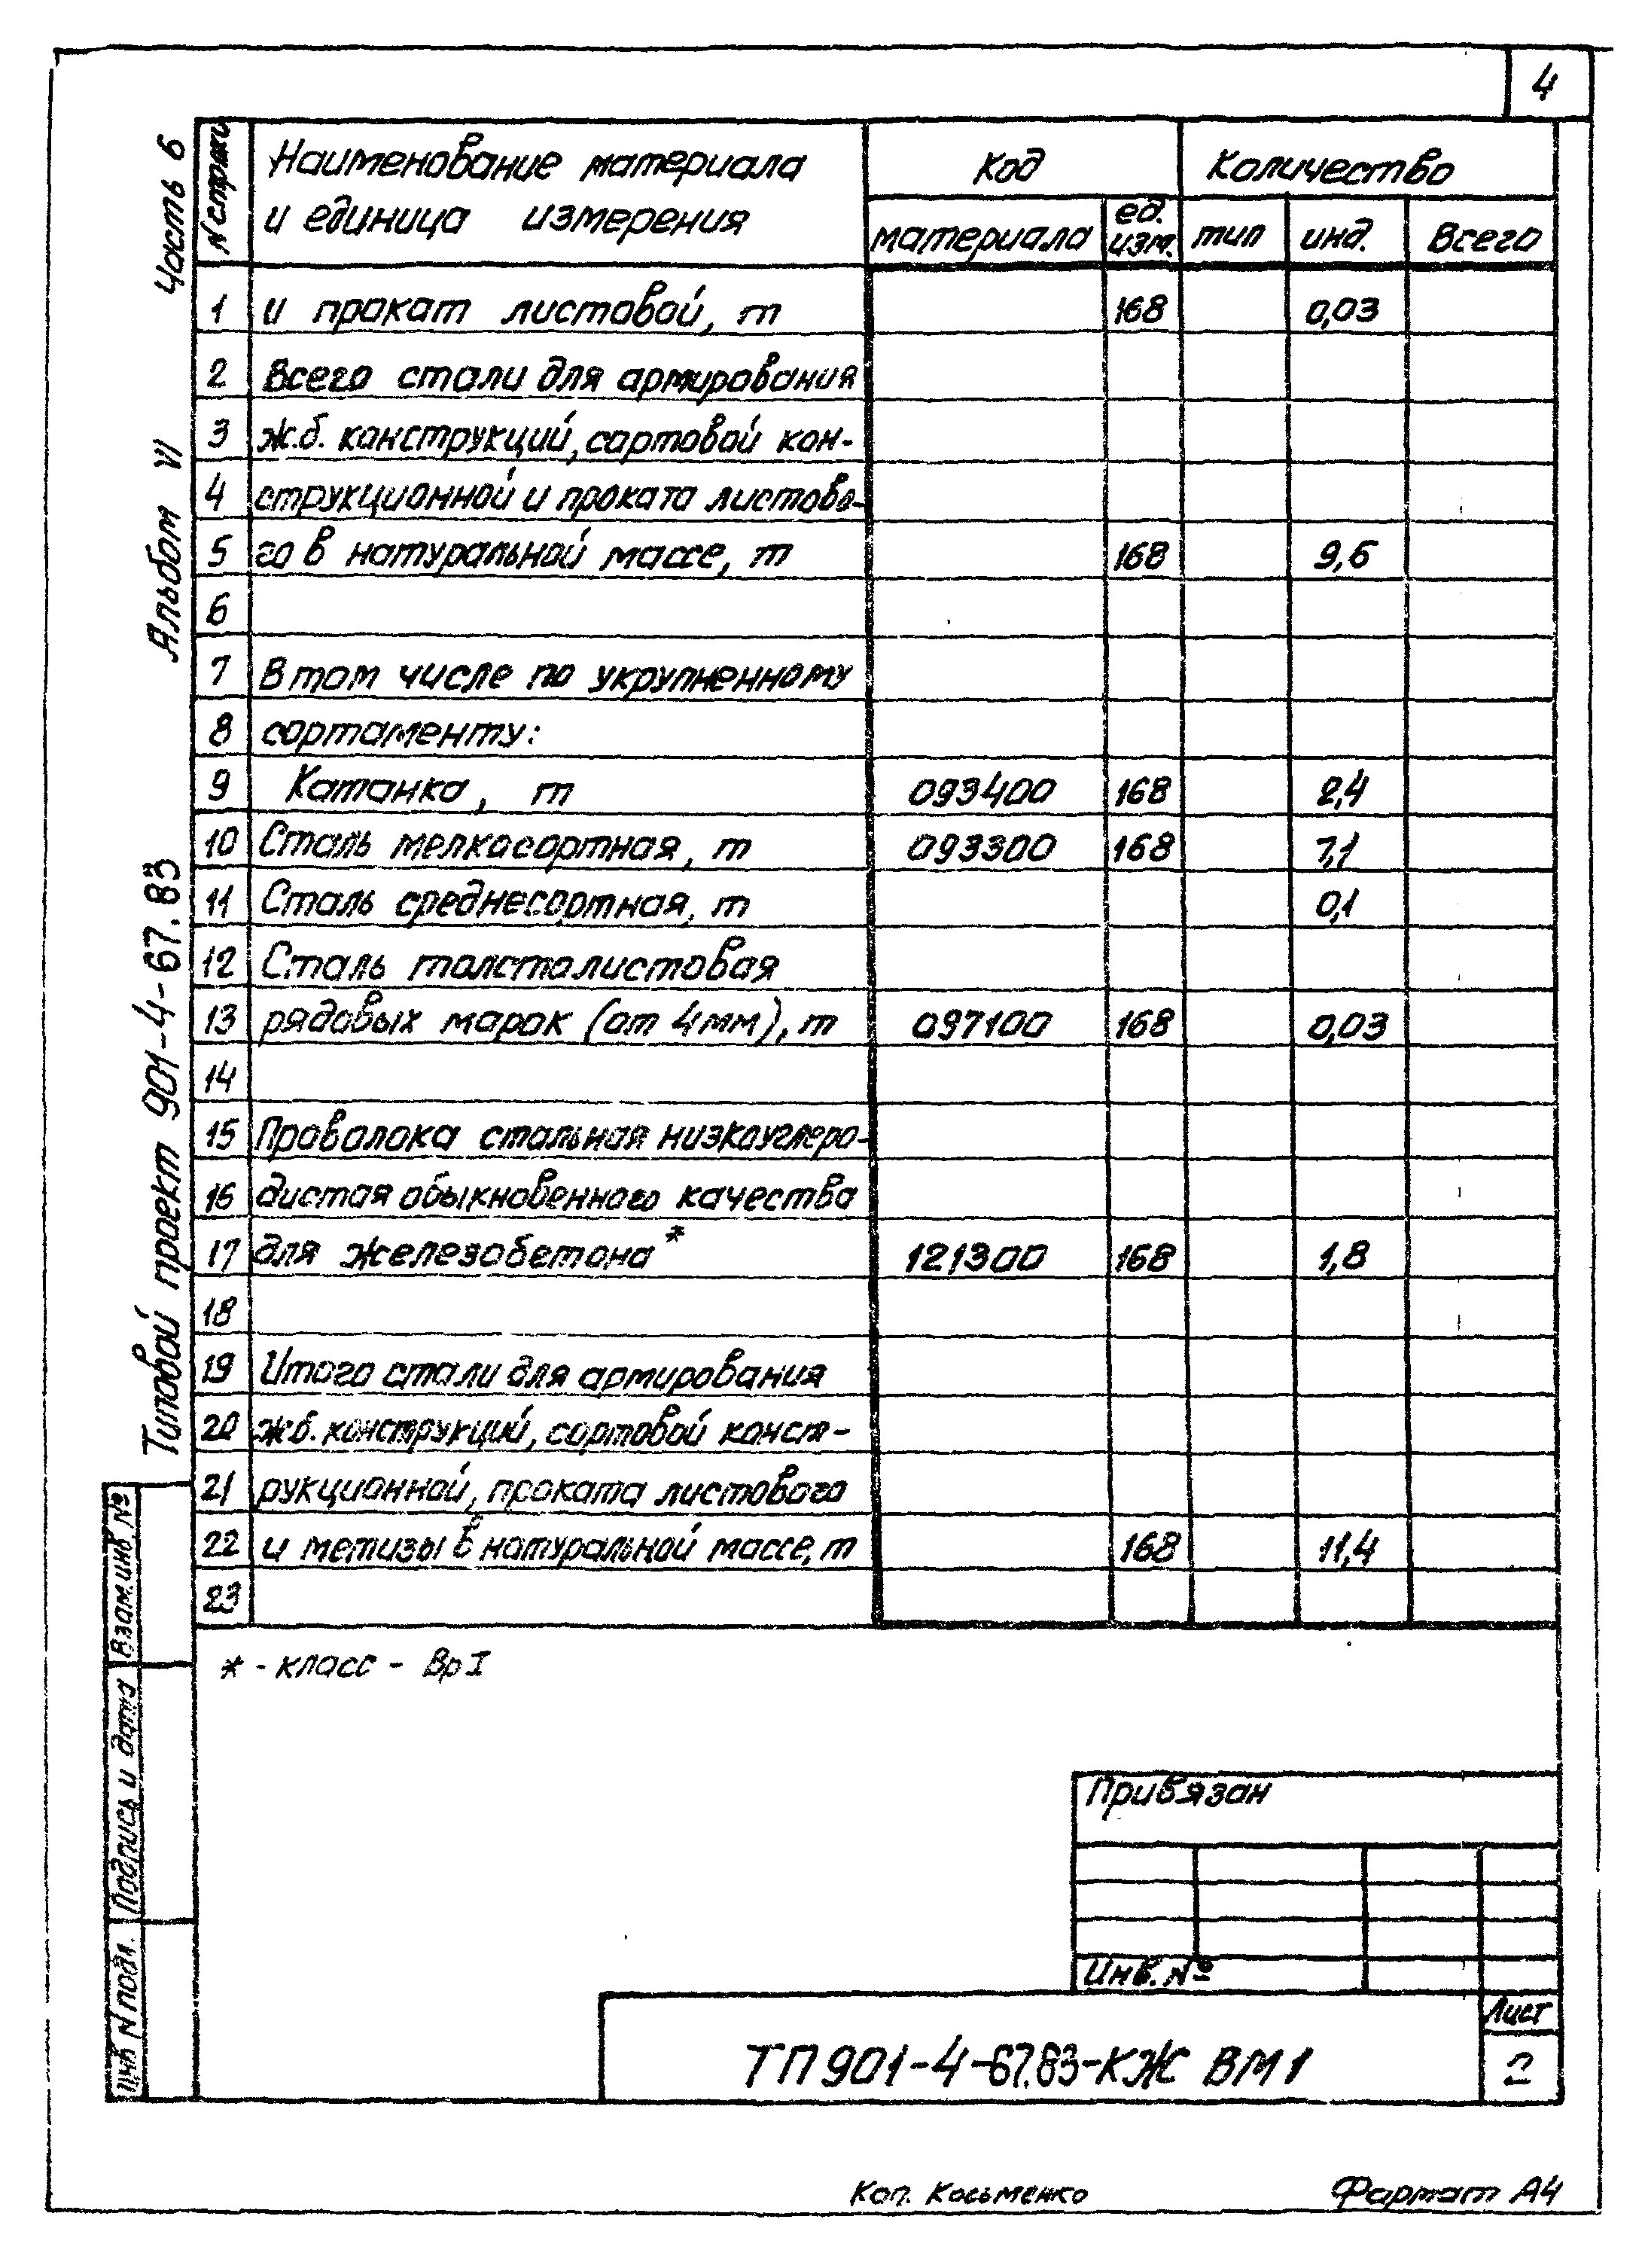 4
N строки Наименование материала и единица измерения Код Количество
материала ед. изм. тип инд. Всего
1 и прокат листовой, т 168 0,03
2 Всего стали для армирования
3 ж.б. конструкций, сортовой кон-
4 струкционной и проката листово-
5 го в натуральной массе, т 168 9,6
6
7 В том числе по укрупненному
8 сортаменту:
9 Катанка, т 093400 168 2,4
10 Сталь мелкосортная, т 093300 168 7,1
11 Сталь среднесортная, т 0,1
12 Сталь толстолистовая
13 рядовых марок (от 4мм), т 097100 168 0,03
14
15 Проволока стальная низкоуглеро-
16 дистая обыкновенного качества
17 для железобетона* 121300 168 1,8
18
19 Итого стали для армирования
20 ж.б. конструкций, сортовой конст-
21 рукционной, проката листового
22 и метизы в натуральной массе, т 168 11,4
23
* - класс - Вр I
Типовой проект 901-4-67.83 Альбом VI Часть 6
Взам.инв.№
Подпись и дата
Инв N подл.
Привязан
Инв. №
ТП 901-4-67.83-КЖ ВМ1
Лист
2
Коп. Косьменко Формат А4